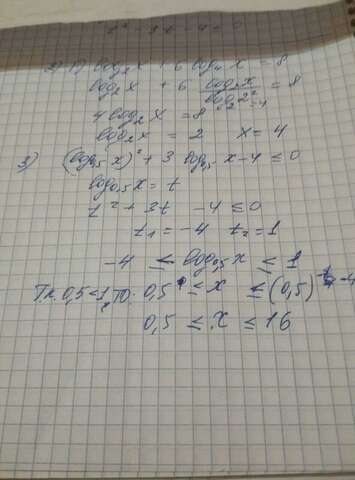 2) 1) log₂x + 6 log₄x = 8
log₂x + 6 log₂x / log₂2² = 8
4 log₂x = 8
log₂x = 2 x = 4
3) (log₀,₅x)² + 3 log₀,₅x - 4 ≤ 0
log₀,₅x = t
t² + 3t - 4 ≤ 0
t₁ = -4 t₂ = 1
-4 ≤ log₀,₅x ≤ 1
Тк 0,5<1, ТО: 0,5¹ ≤ x ≤ (0,5)⁻⁴
0,5 ≤ x ≤ 16